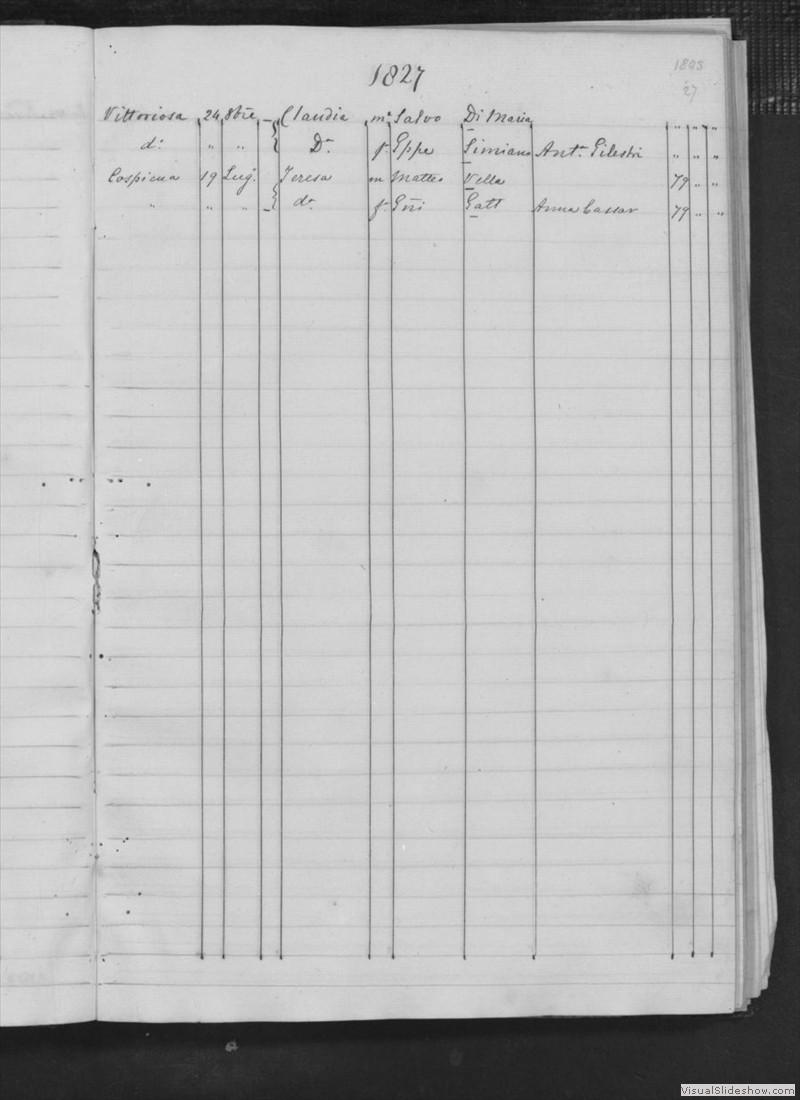 1827
1895
27
Vittoriosa 24 8bre Claudia m. Salvo Di Maria " " "
do. " " Da. f. Gppe Simiano Anta. Gilestri " " "
Cospicua 19 Lugo. Teresa m Matteo Vella 79 " "
" " " da. f. Gni Gatt Anna Cassar 79 " "
VisualSlideshow.com